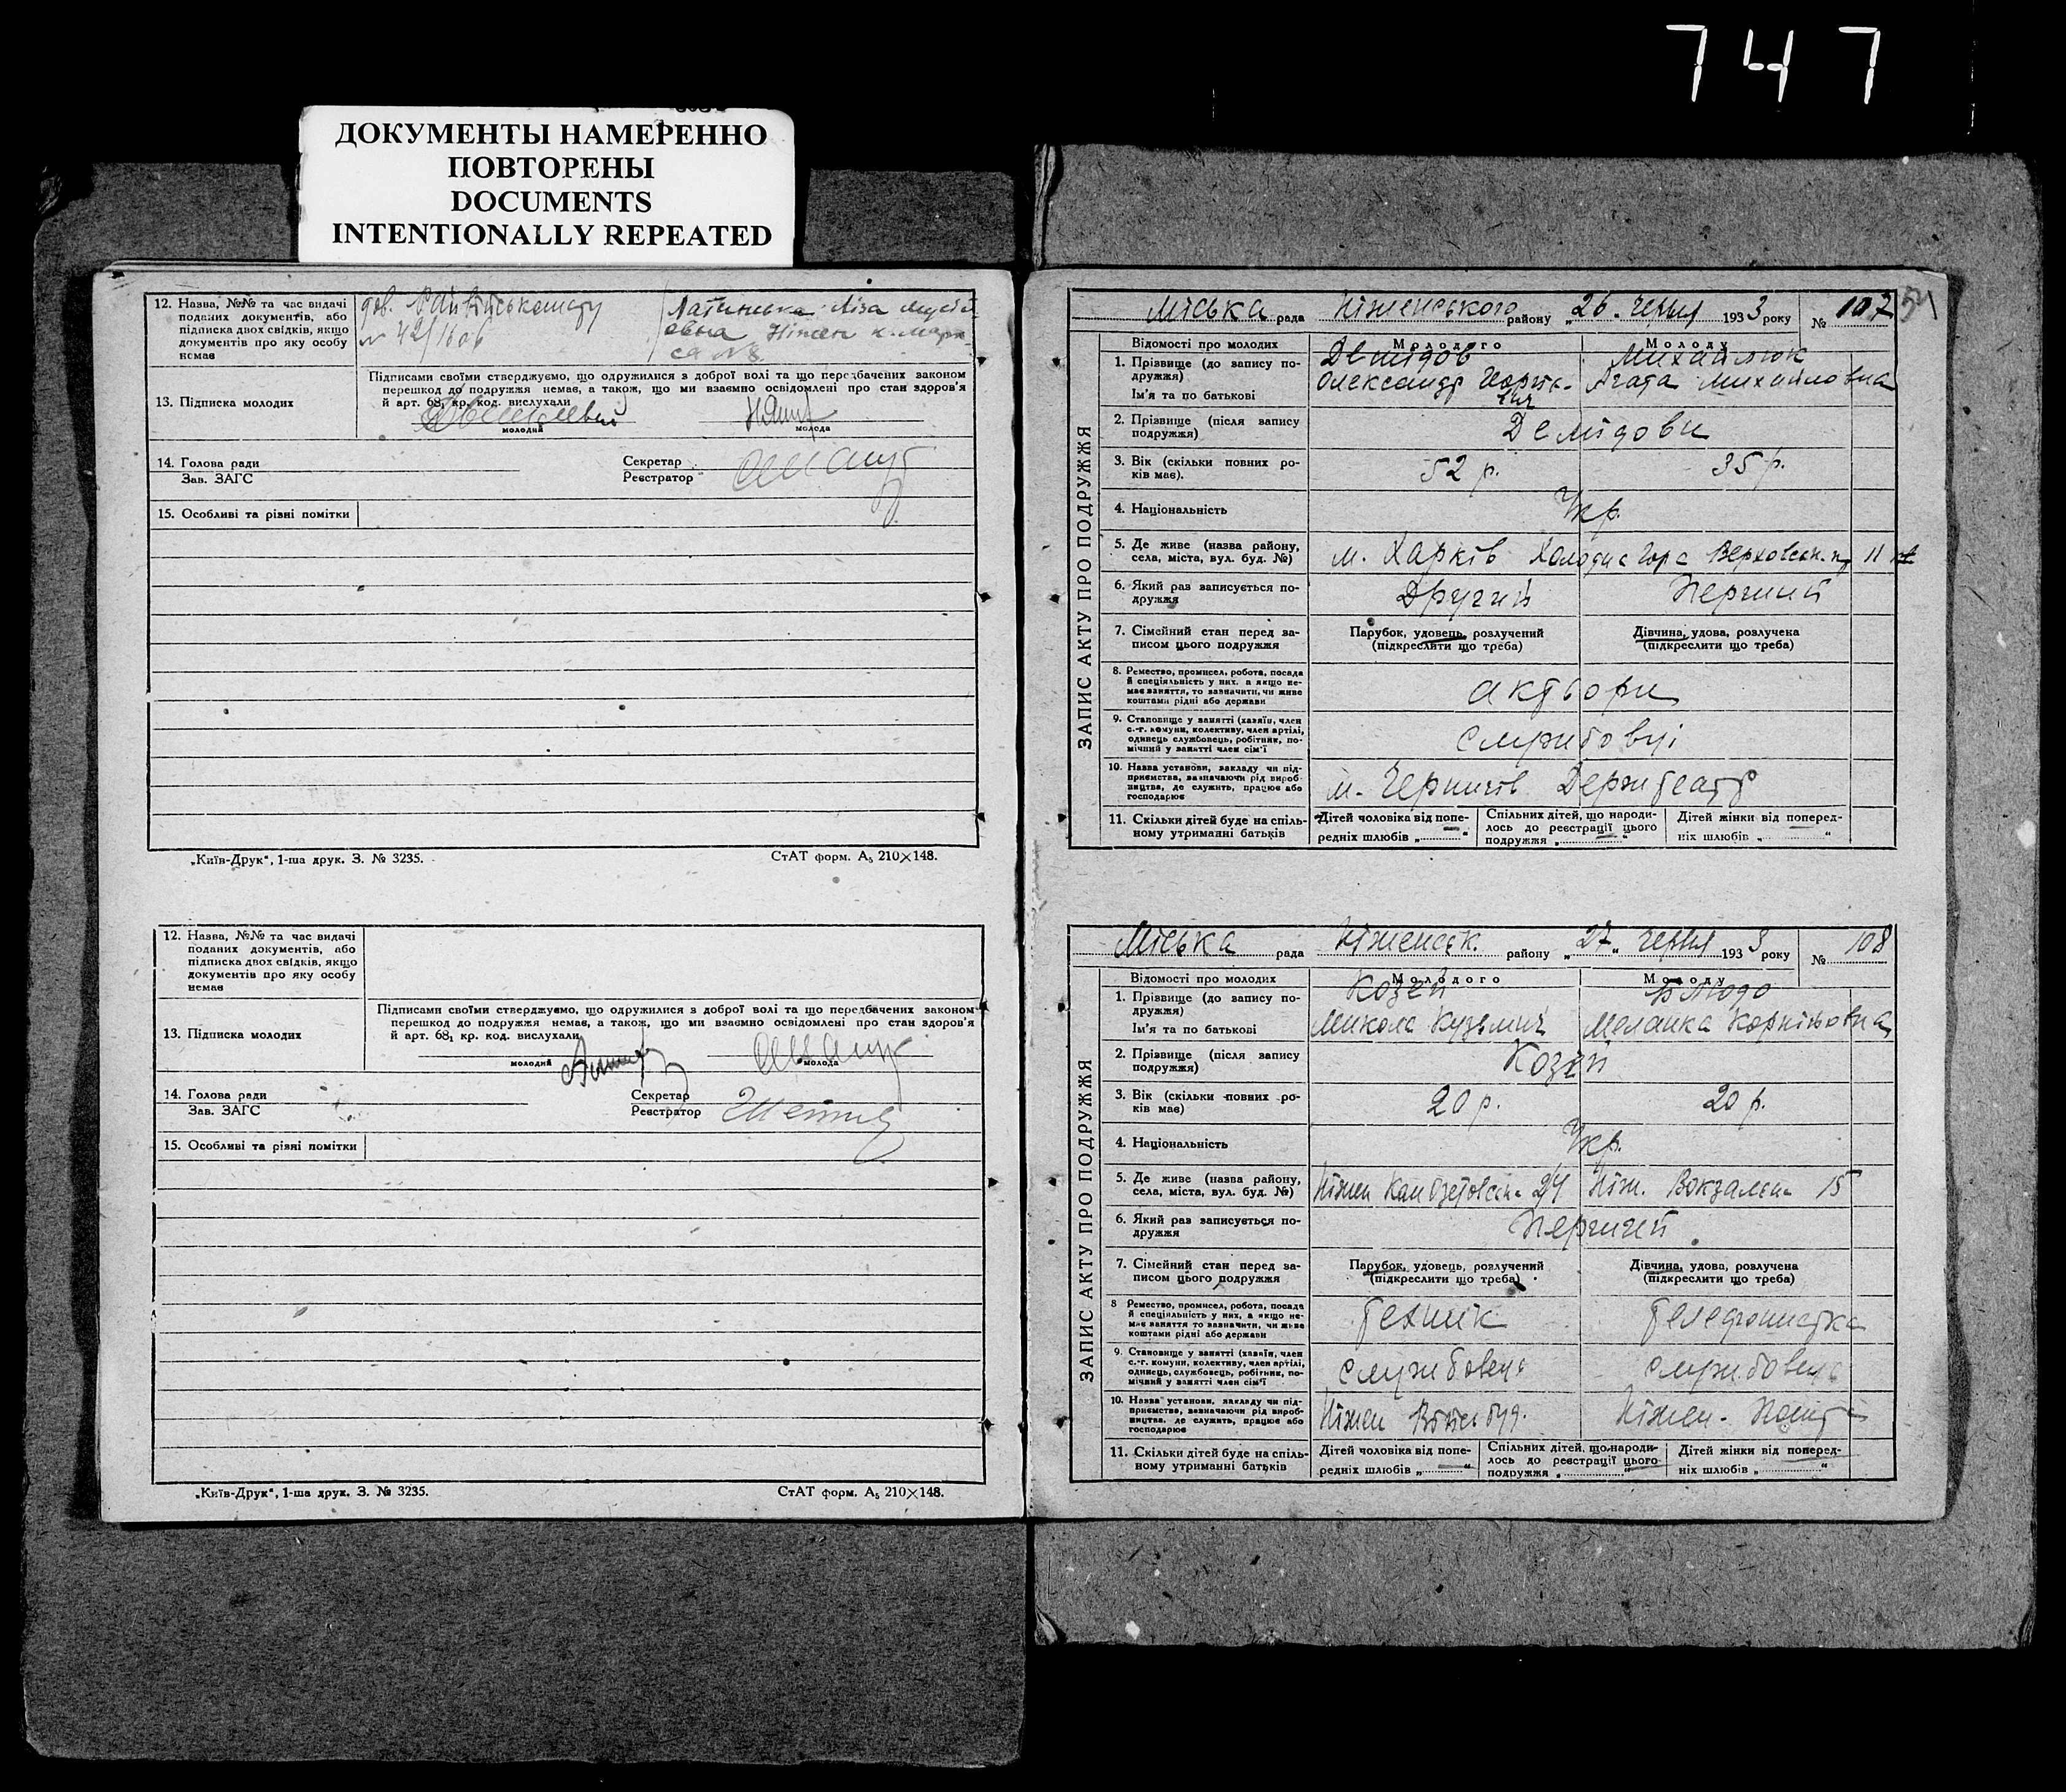 747
ДОКУМЕНТЫ НАМЕРЕННО
ПОВТОРЕНЫ
DOCUMENTS
INTENTIONALLY REPEATED
12. Назва, №№ та час видачі
поданих документів, або
підписка двох свідків, якщо
документів про яку особу
немає
дов.
№ 42/1606
Ліза
Ніжен к. Марк-
са № 8
13. Підписка молодих
Підписами своїми стверджуємо, що одружилися з доброї волі та що передбачених законом
перешкод до подружжя немає, а також, що ми взаємно освідомлені про стан здоров'я
й арт. 68₁ кр. код. вислухали
молодий
молода
14. Голова ради
Зав. ЗАГС
Секретар
Реєстратор
15. Особливі та різні помітки
„Київ-Друк“, 1-ша друк. З. № 3235.
СтАТ форм. А₅ 210×148.
12. Назва, №№ та час видачі
поданих документів, або
підписка двох свідків, якщо
документів про яку особу
немає
13. Підписка молодих
Підписами своїми стверджуємо, що одружилися з доброї волі та що передбачених законом
перешкод до подружжя немає, а також, що ми взаємно освідомлені про стан здоров'я
й арт. 68₁ кр. код. вислухали
молодий
молода
14. Голова ради
Зав. ЗАГС
Секретар
Реєстратор
15. Особливі та різні помітки
„Київ-Друк“, 1-ша друк. З. № 3235.
СтАТ форм. А₅ 210×148.
Міська рада Ніженського району „26. червня 1933 року № 107
ЗАПИС АКТУ ПРО ПОДРУЖЖЯ
Відомості про молодих
Молодого
Молоду
1. Прізвище (до запису по-
дружжя)
Ім'я та по батькові
Демідов
Олександр Георгіє-
вич
Михайлюк
Агата Михайловна
2. Прізвище (після запису
подружжя)
Демідови
3. Вік (скільки повних ро-
ків має).
52 р.
35 р.
4. Національність
Укр.
5. Де живе (назва району,
села, міста, вул. буд. №)
м. Харків Холодна Гора 11
6. Який раз записується по-
дружжя
Другий
Перший
7. Сімейний стан перед за-
писом цього подружжя
Парубок, удовець, розлучений
(підкреслити що треба)
Дівчина, удова, розлучена
(підкреслити що треба)
8. Ремество, промисел, робота, посада
й спеціяльність у них, а якщо не-
має заняття, то зазначити, чи живе
коштами рідні або держави
актьори
9. Становище у занятті (хазяїн, член
с.-г. комуни, колективу, член артілі,
одинець службовець, робітник, по-
мічний у занятті член сім'ї
службовці
10. Назва установи, закладу чи під-
приємства, зазначаючи рід вироб-
ництва, де служить, працює або
господарює
м. Чернигів Держтеатр
11. Скільки дітей буде на спіль-
ному утриманні батьків
Дітей чоловіка від попе-
редніх шлюбів „ “
Спільних дітей, що народи-
лось до реєстрації цього
подружжя „ “
Дітей жінки від поперед-
ніх шлюбів „ “
Міська рада Ніженськ. району „27“ червня 1933 року № 108
ЗАПИС АКТУ ПРО ПОДРУЖЖЯ
Відомості про молодих
Молодого
Молоду
1. Прізвище (до запису по-
дружжя)
Ім'я та по батькові
Козей
Микола Кузьмич
Блюдо
Меланка Корніьовна
2. Прізвище (після запису
подружжя)
Козей
3. Вік (скільки повних ро-
ків має)
20 р.
20 р.
4. Національність
Укр.
5. Де живе (назва району,
села, міста, вул. буд. №)
Ніжен
Ніж. Вокзальна 15
6. Який раз записується по-
дружжя
Перший
7. Сімейний стан перед за-
писом цього подружжя
Парубок, удовець, розлучений
(підкреслити що треба)
Дівчина, удова, розлучена
(підкреслити що треба)
8 Ремество, промисел, робота, посада
й спеціяльність у них, а якщо не-
має заняття то зазначити, чи живе
коштами рідні або держави
технік
телефоністка
9. Становище у занятті (хазяїн, член
с.-г. комуни, колективу, член артілі,
одинець, службовець, робітник, по-
мічний у занятті член сім'ї
службовець
службовець
10. Назва установи, закладу чи під-
приємства, зазначаючи рід вироб-
ництва, де служить, працює або
господарює
Ніжен
Ніжен. Пошта
11. Скільки дітей буде на спіль-
ному утриманні батьків
Дітей чоловіка від попе-
редніх шлюбів „ “
Спільних дітей, що народи-
лось до реєстрації цього
подружжя „ “
Дітей жінки від поперед-
ніх шлюбів „ “